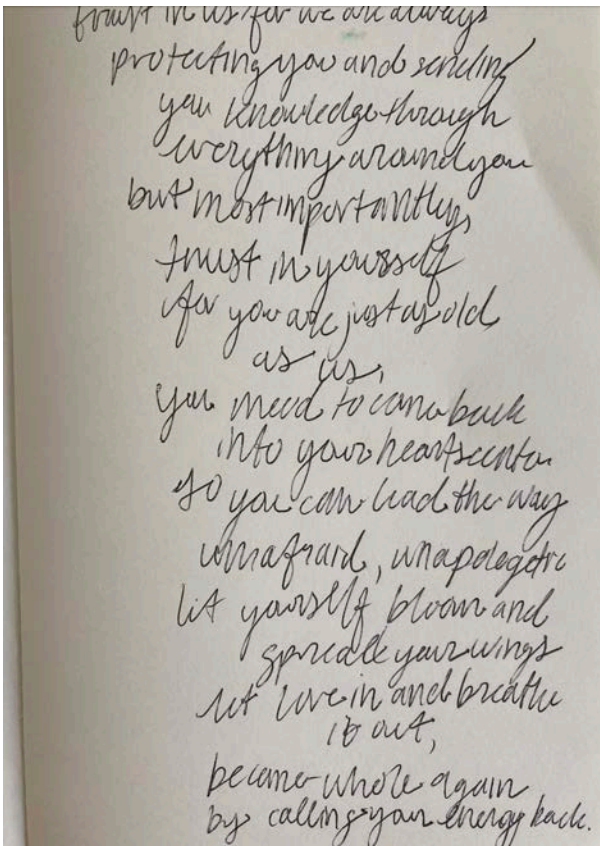 trust in us for we are always
protecting you and sending
you knowledge through
everything around you
but most importantly,
trust in yourself
for you are just as old
as us,
you need to come back
into your heartscenter
so you can lead the way
unafraid, unapologetic
let yourself bloom and
spread your wings
let love in and breathe
it out,
become whole again
by calling your energy back.